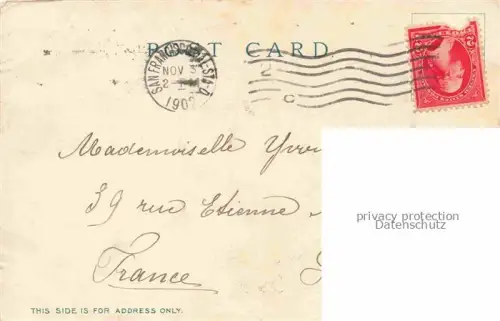 POST CARD
SAN FRANCISCO, CAL.
NOV 3
2
190
2
Mademoiselle Yvo
39 rue Etienne
France
privacy protection
Datenschutz
THIS SIDE IS FOR ADDRESS ONLY.